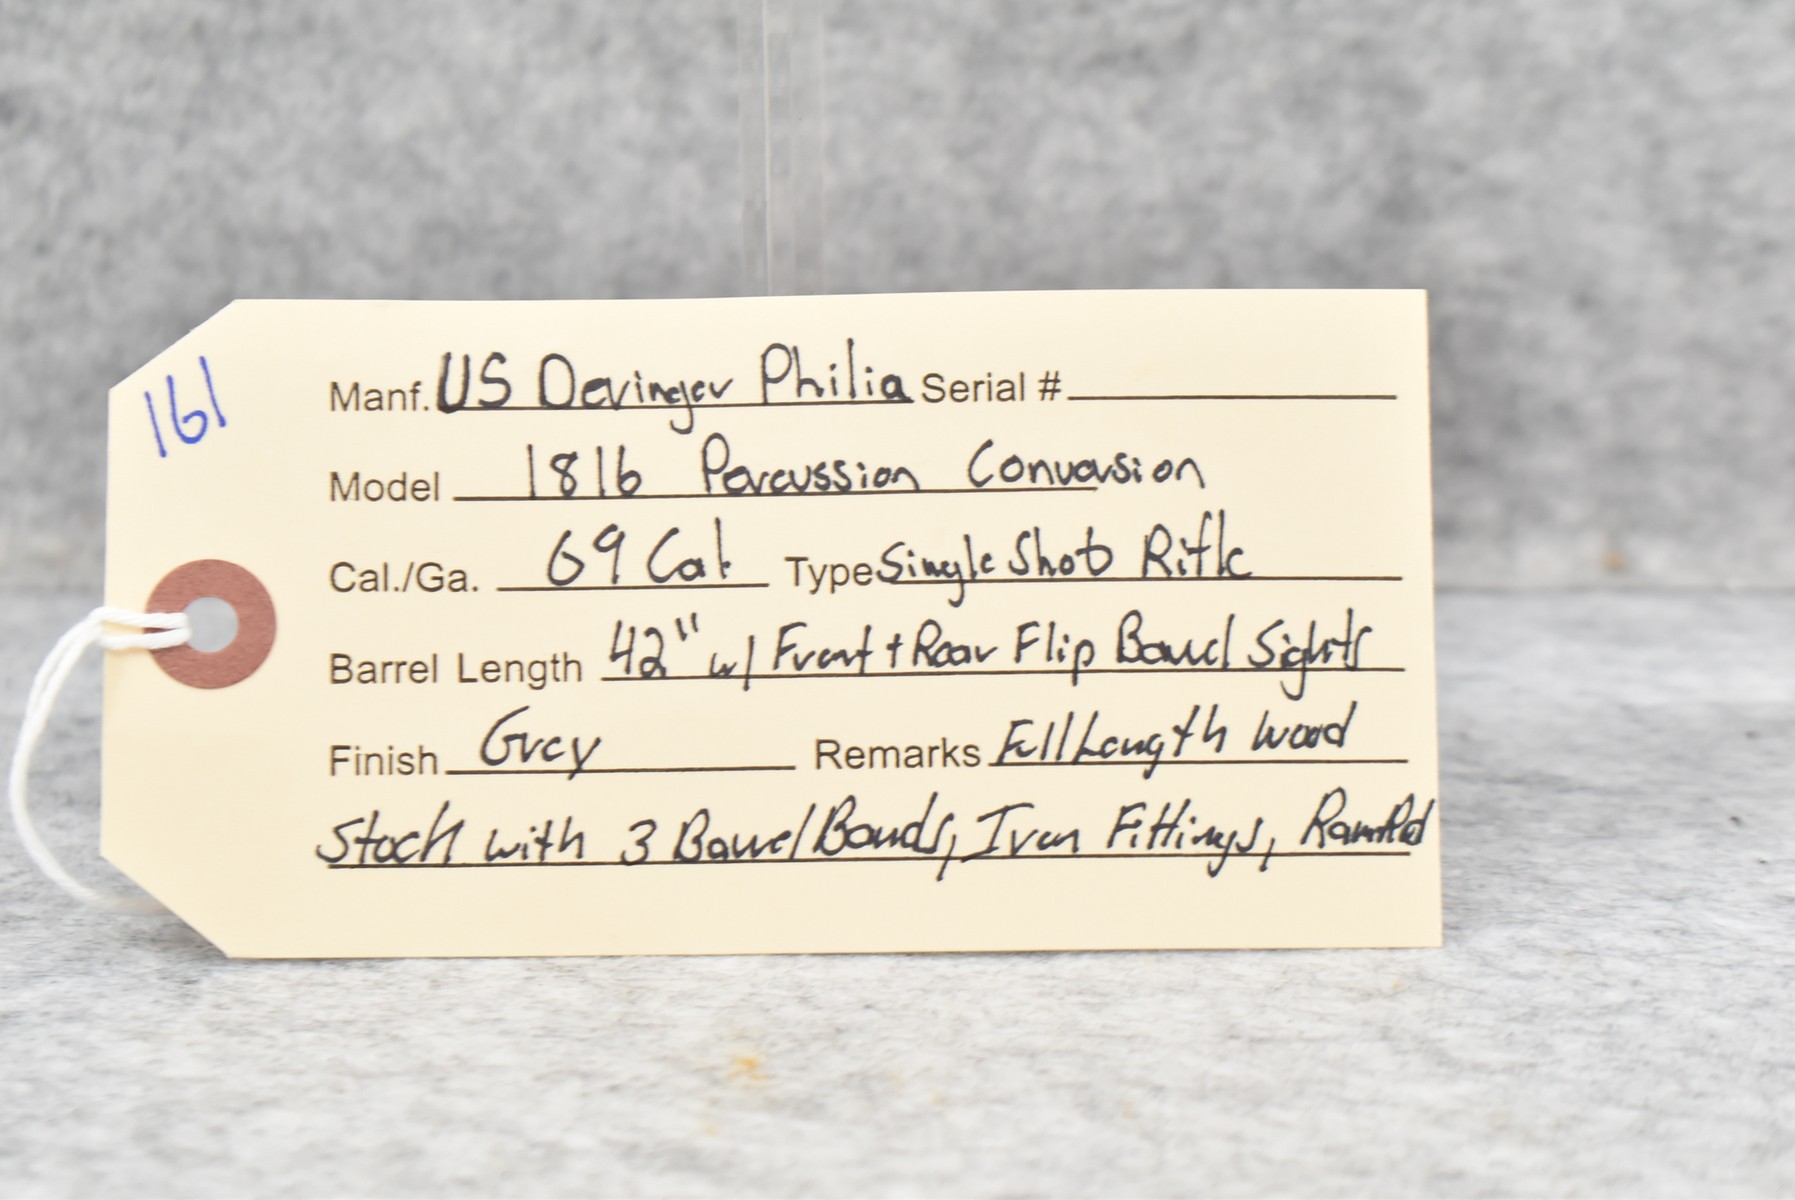 161
Manf. US Deringer Philia Serial #
Model 1816 Percussion Conversion
Cal./Ga. 69 Cal Type Single Shot Rifle
Barrel Length 42" w/ Front + Rear Flip Barrel Sights
Finish Grey Remarks Full Length Wood
Stock with 3 Barrel Bands, Iron Fittings, RamRod